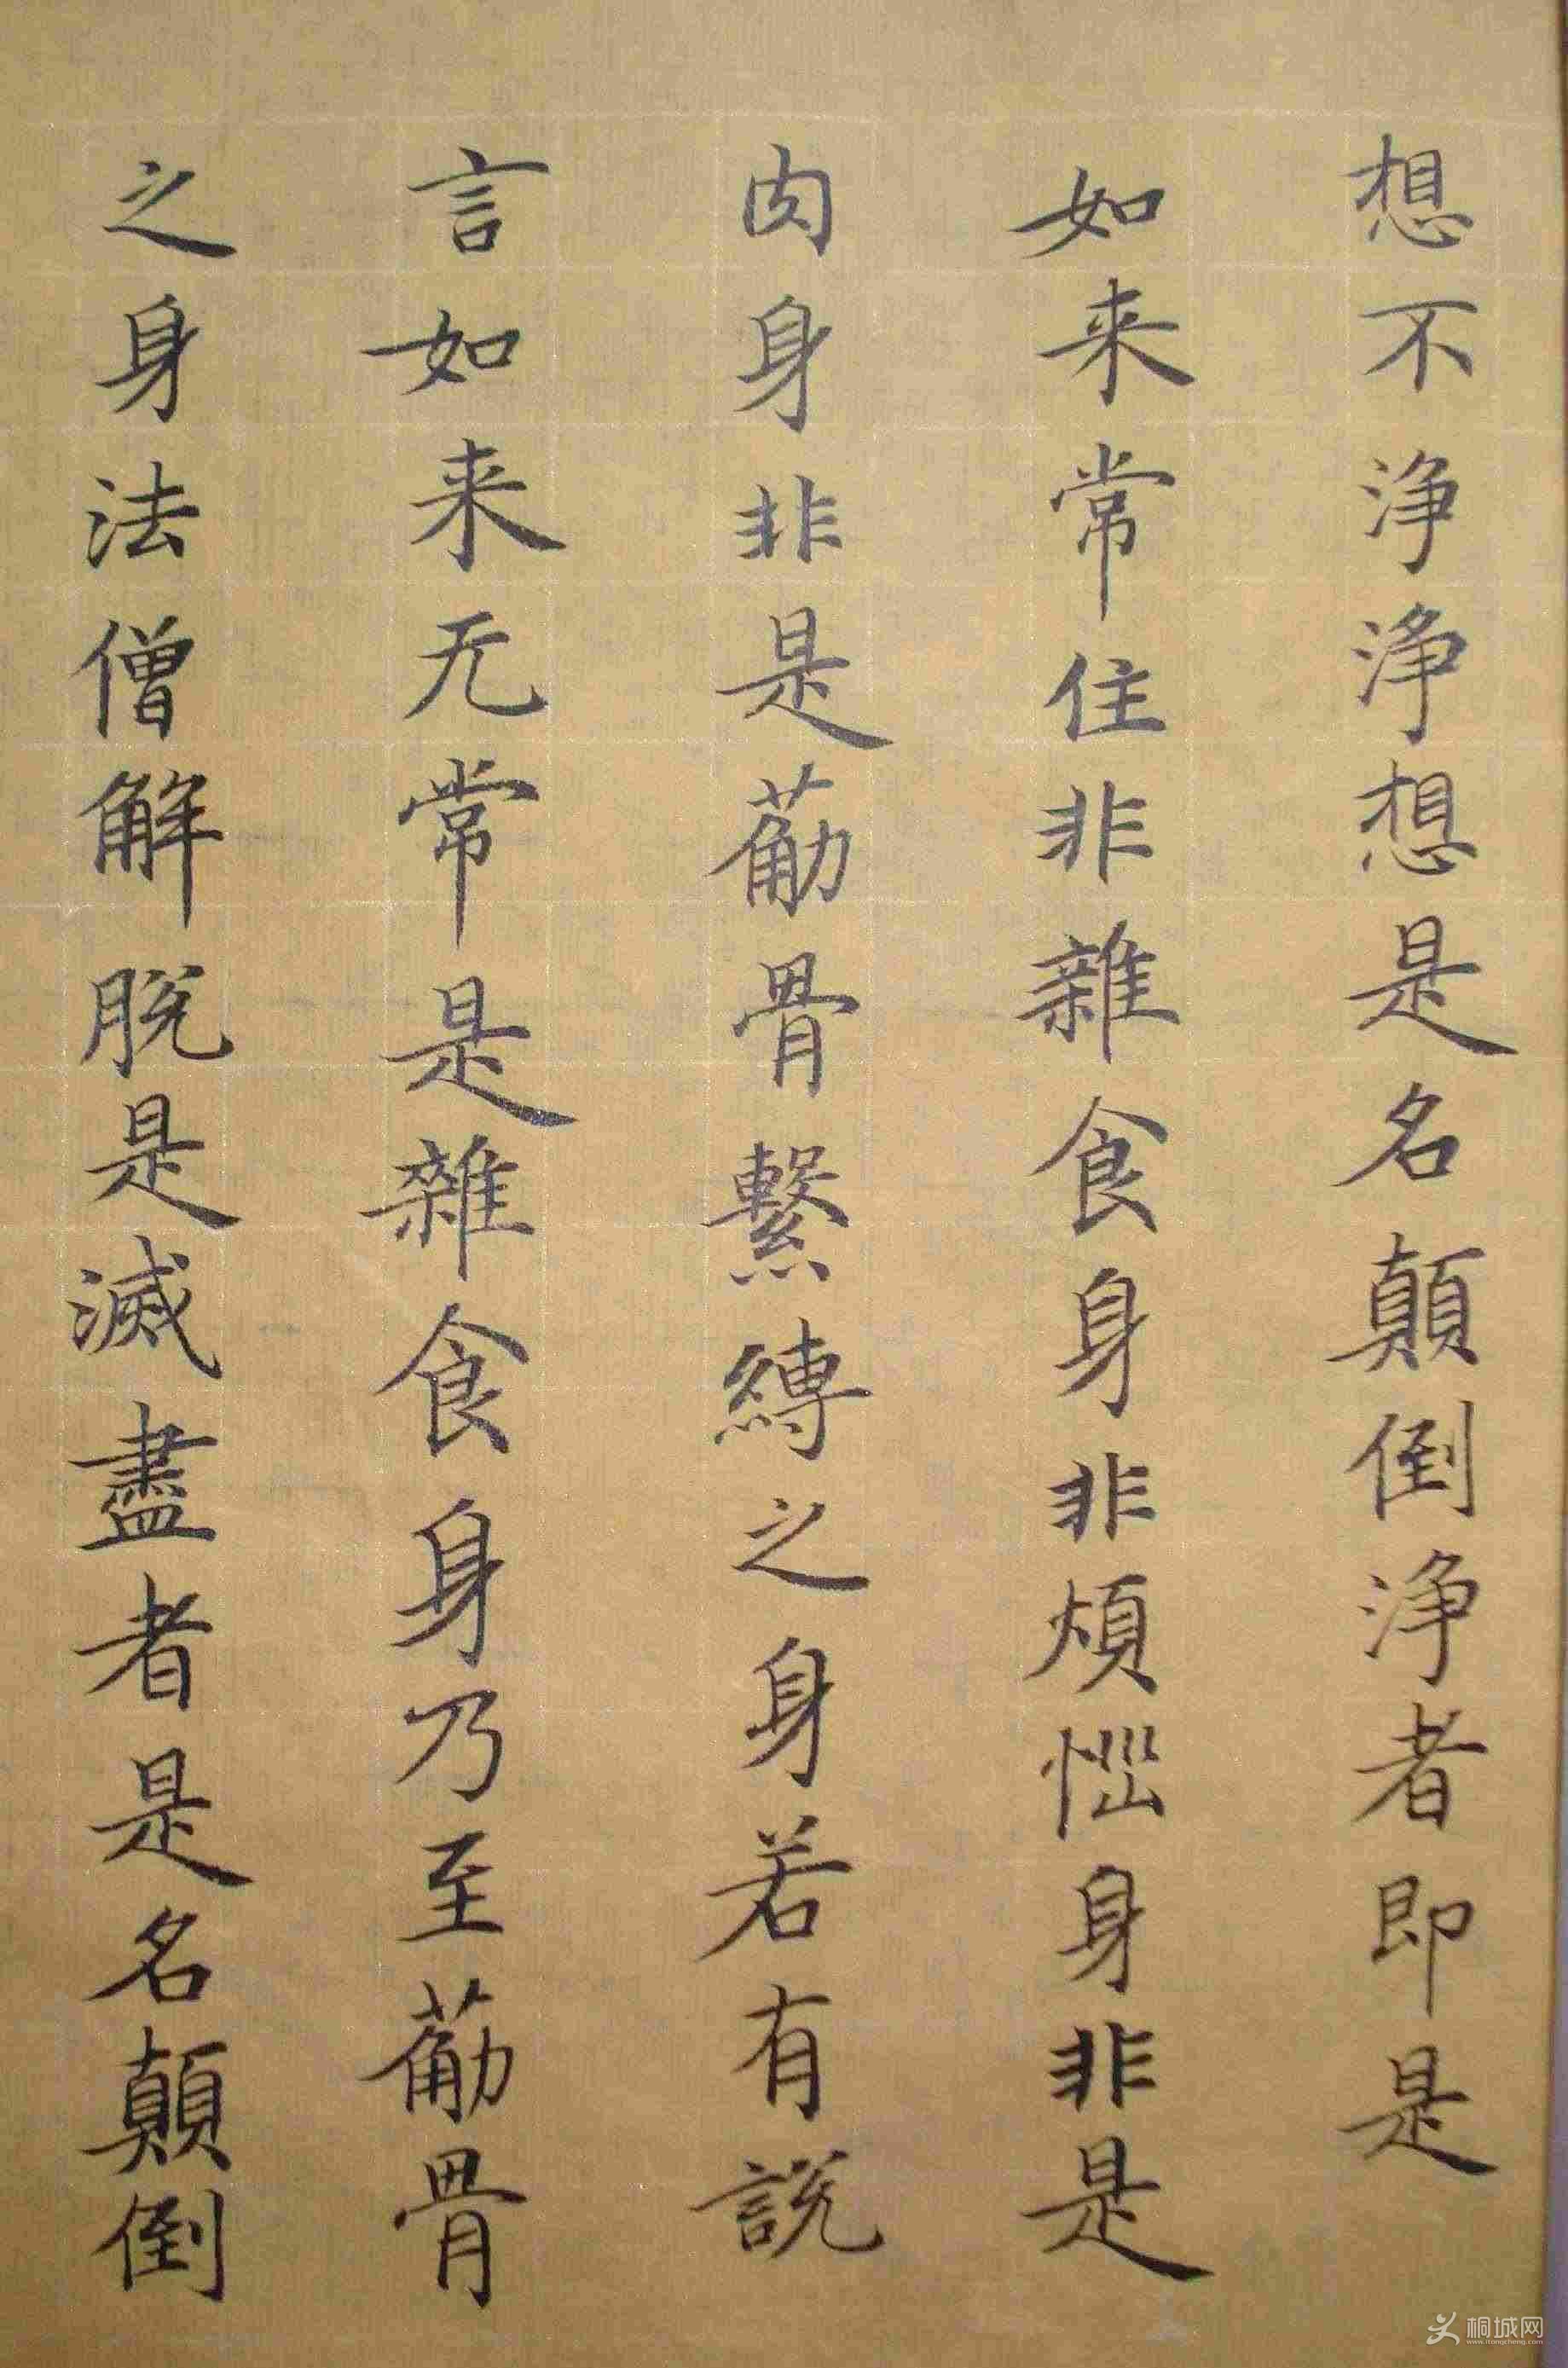 想不浄浄想是名顛倒浄者即是
如来常住非雜食身非煩惱身非是
肉身非是葪骨繫縛之身若有說
言如来无常是雜食身乃至葪骨
之身法僧解脫是滅盡者是名顛倒
桐城网
www.itongcheng.com